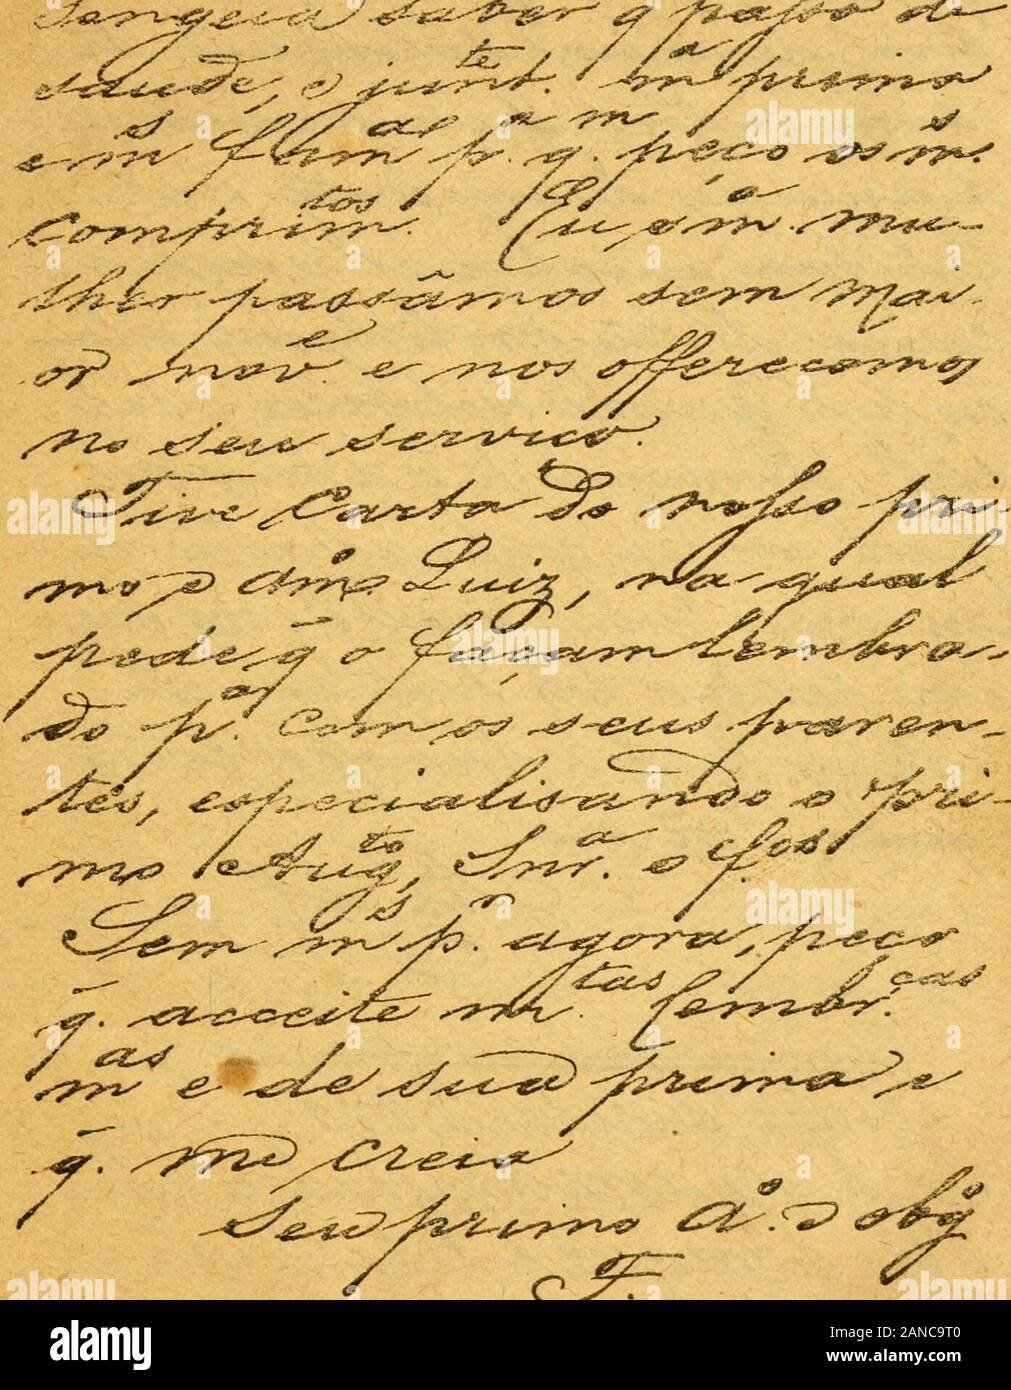 saber q passa de
saude, e junt.te m.a prima
e m.s fam.as p.a q.m peço os m.s
comprim.tos Eu, e m.a mu-
lher passâmos sem mai-
or nov.e e nos offerecemos
no seu servico.
Tive Carta do nosso pri-
mo e am.o Luiz, na qual
pede q̃ o façam lembra-
do p.a com os seus paren-
tes, especialisando o pri-
mo Aug.to, Snr.a e f.os
Sem m.s p.r agora, peço
q̃. acceite m.tas lembr.ças
m.as e de sua prima e
q̃. me creia
Seu primo A.o e obg.o
F.
alamy
Image ID: 2ANC9T0
www.alamy.com